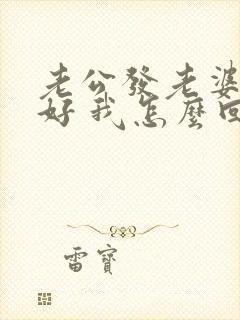 老公發老婆
好我怎麼回
雷寶